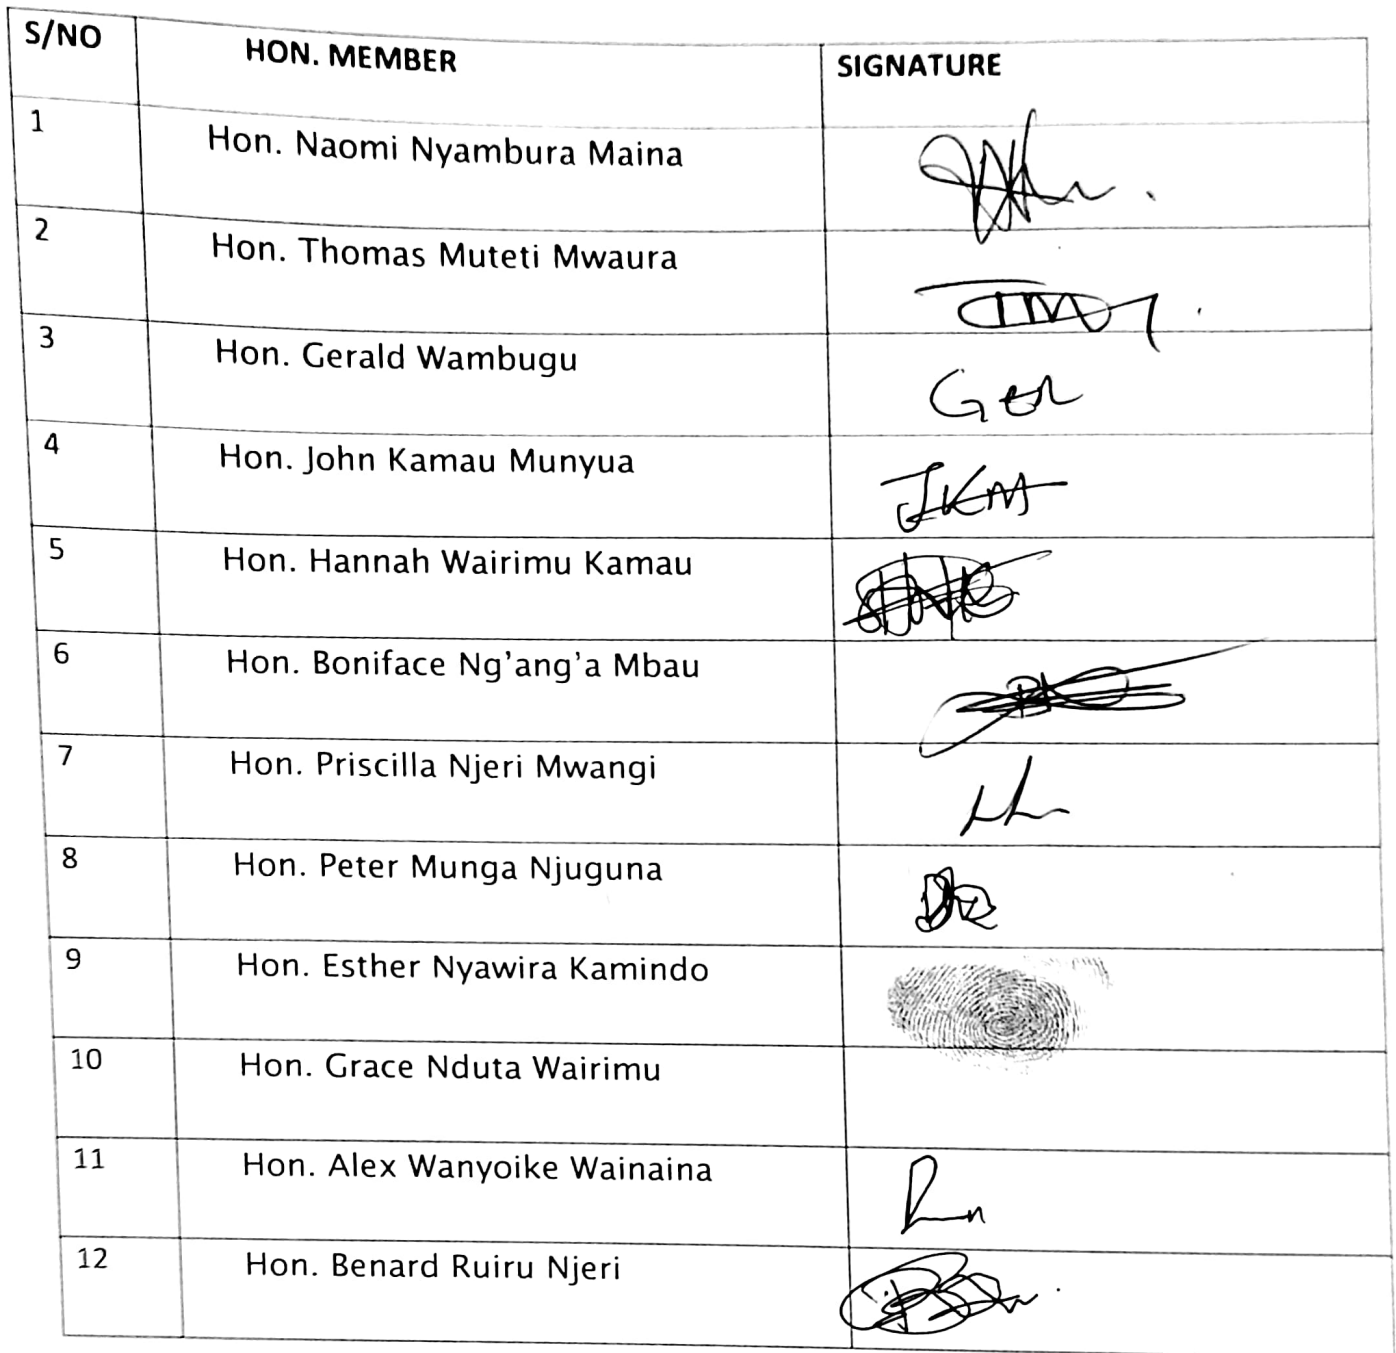 S/NO HON. MEMBER SIGNATURE
1 Hon. Naomi Nyambura Maina
2 Hon. Thomas Muteti Mwaura
3 Hon. Gerald Wambugu Ger
4 Hon. John Kamau Munyua JKM
5 Hon. Hannah Wairimu Kamau
6 Hon. Boniface Ng'ang'a Mbau
7 Hon. Priscilla Njeri Mwangi
8 Hon. Peter Munga Njuguna
9 Hon. Esther Nyawira Kamindo
10 Hon. Grace Nduta Wairimu
11 Hon. Alex Wanyoike Wainaina
12 Hon. Benard Ruiru Njeri